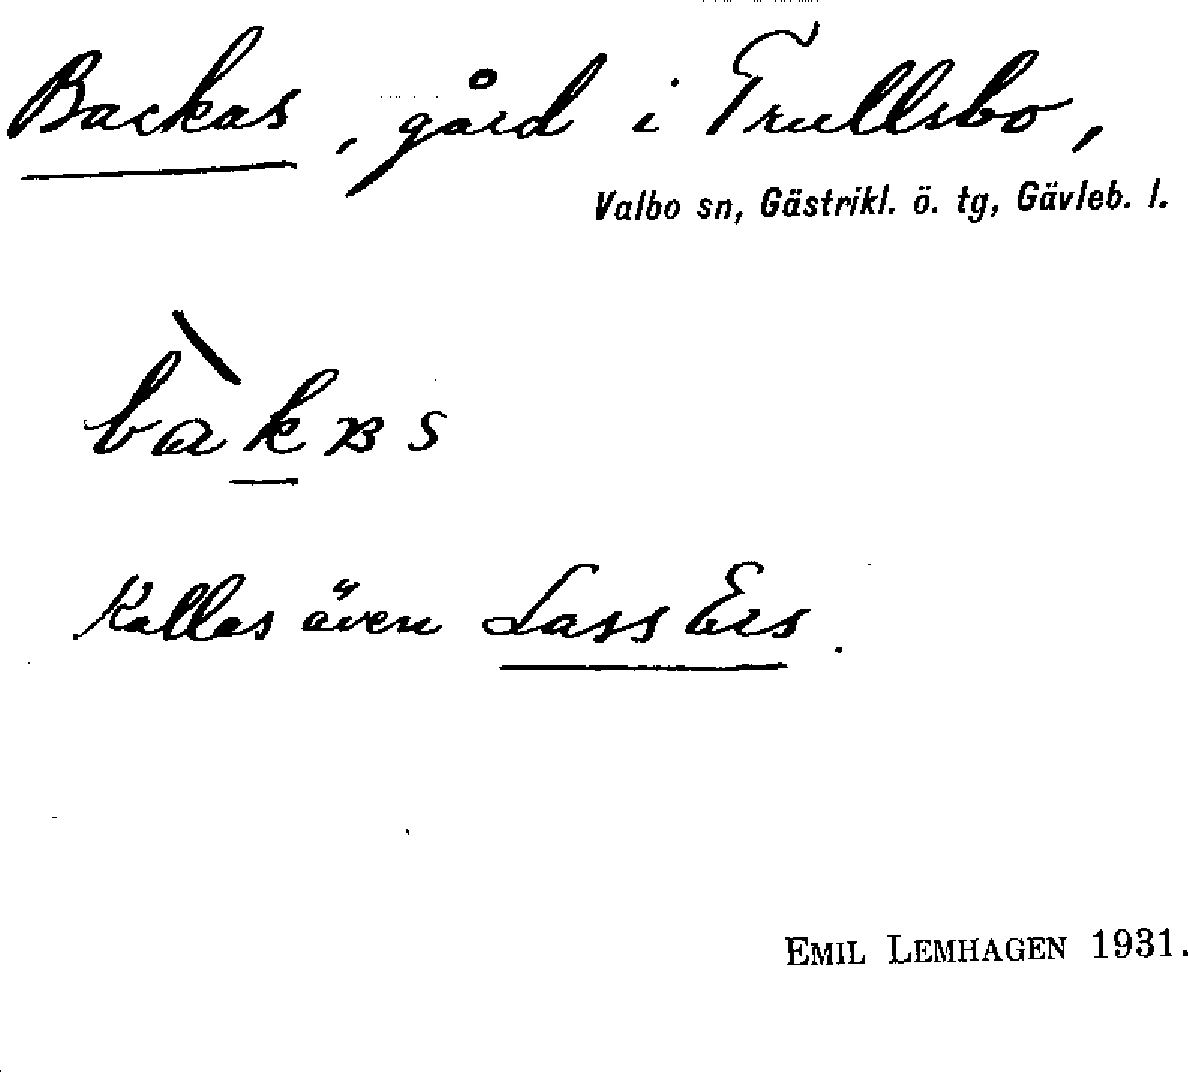 Backas, gård i Trullsbo,
Valbo sn, Gästrikl. ö. tg, Gävleb. l.
bàkʙs
Kallas även Lass Ers.
EMIL LEMHAGEN 1931.